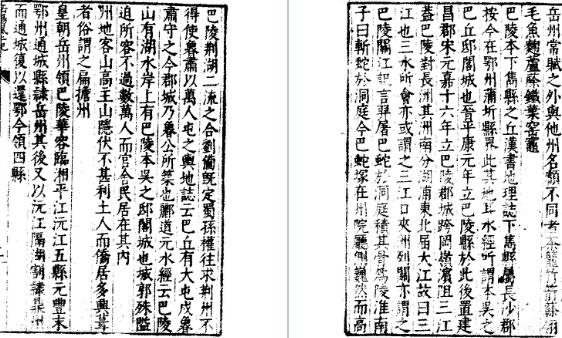 岳州常賦之外與他州名額不同者茶
毛魚麯蘆鐵葉窰竈
巴陵本下雋縣之丘漢書地理誌下雋縣屬長沙郡
按今在鄂州蒲圻縣界此其地耳水經所謂本吳之
巴丘邸閣城也晉平康元年立巴陵縣於此後置建
昌郡宋元嘉十六年立巴陵郡城跨岡嶺濱阻三江
蓋巴陵對長洲其洲南分湖浦東北屆大江故曰三
江也三水所會亦或謂之三江口夾洲列關亦謂之
巴陵關江記言羿屠巴蛇於洞庭積其骨為陵淮南
子曰斬蛇於洞庭今巴蛇塚在州院廳側巍然而高
巴陵荆湖二流之合劉備既定蜀孫權往求荆州不
得使魯肅以萬人屯之輿地誌云巴丘有大屯戍魯
肅守之今郡城乃魯公所築也酈道元水經云巴陵
山有湖水岸上有巴陵本吳之邸閣城也城郭殊隘
迫所容不過數萬人而官舍民居在其內
州地客山高主山隱伏不甚利土人而僑居多興葺
者俗謂之扁擔州
皇朝岳州領巴陵華容臨湘平江沅江五縣元豐末
鄂州通城縣隷岳州其後又以沅江隔湖割隷鼎州
而通城復以還鄂今領四縣